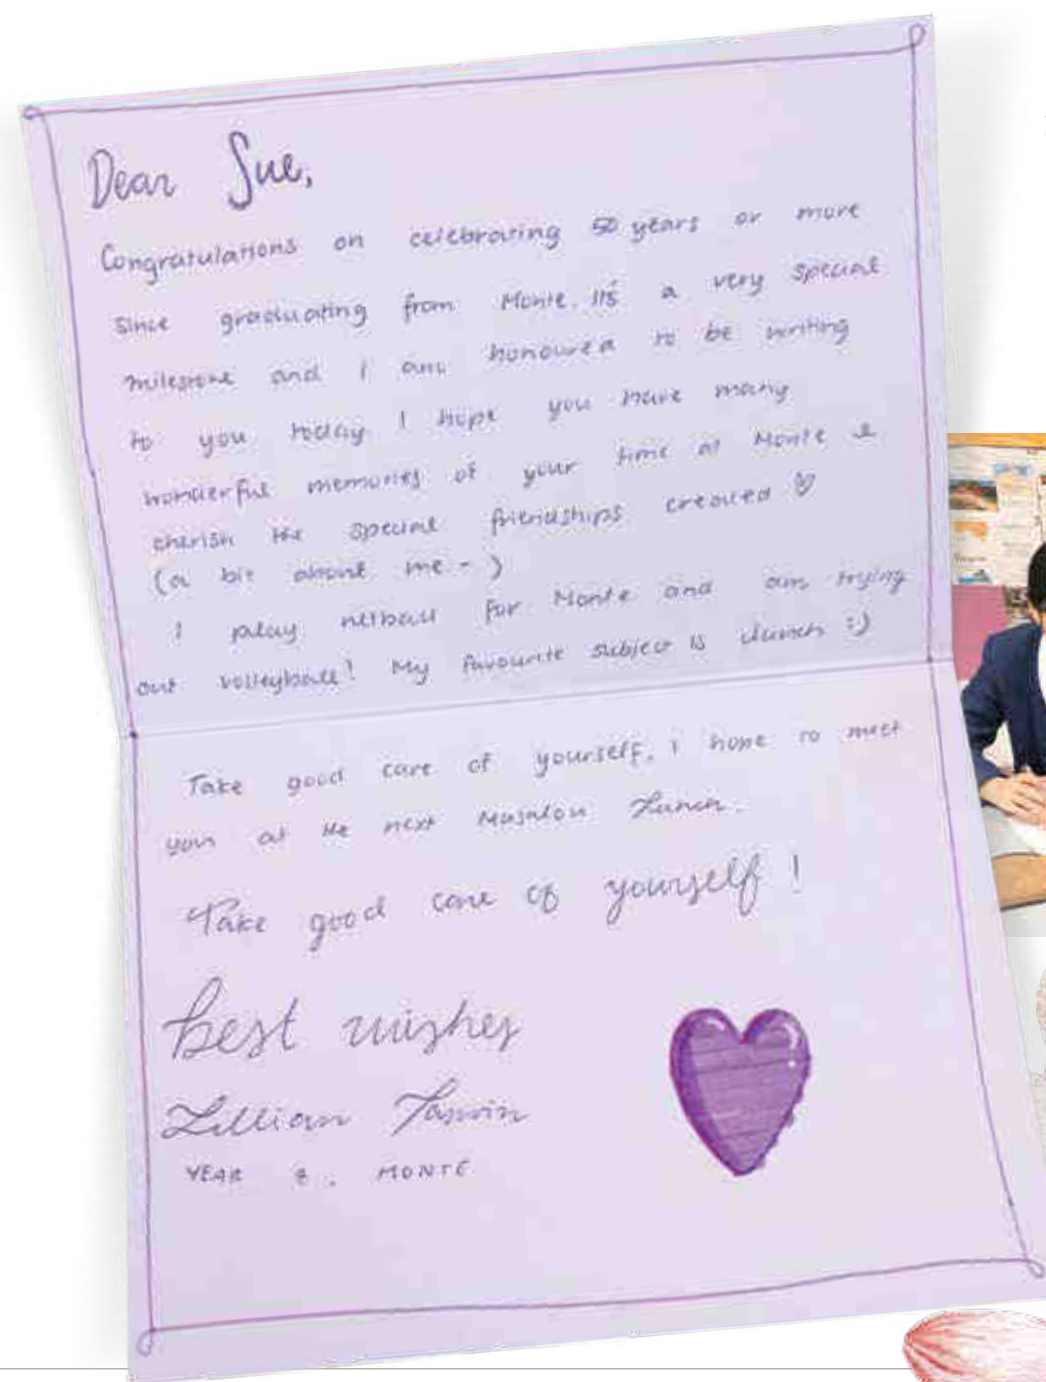 Dear Sue,
Congratulations on celebrating 50 years or more
since graduating from Monte. It's a very special
milestone and I am honoured to be writing
to you today. I hope you have many
wonderful memories of your time at Monte &
cherish the special friendships created ♡
(a bit about me - )
I play netball for Monte and am trying
out volleyball! My favourite subject is :)
Take good care of yourself, i hope to meet
you at the next Lunch.
Take good care of yourself!
best wishes
Lillian
YEAR 8, MONTE